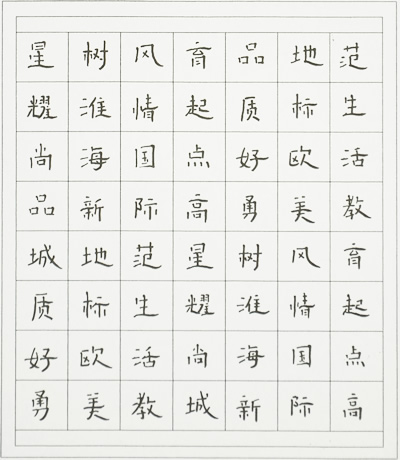 星树风育品地范
耀淮情起质标生
尚海国点好欧活
品新际高勇美教
城地范星树风育
质标生耀淮情起
好欧活尚海国点
勇美教城新际高